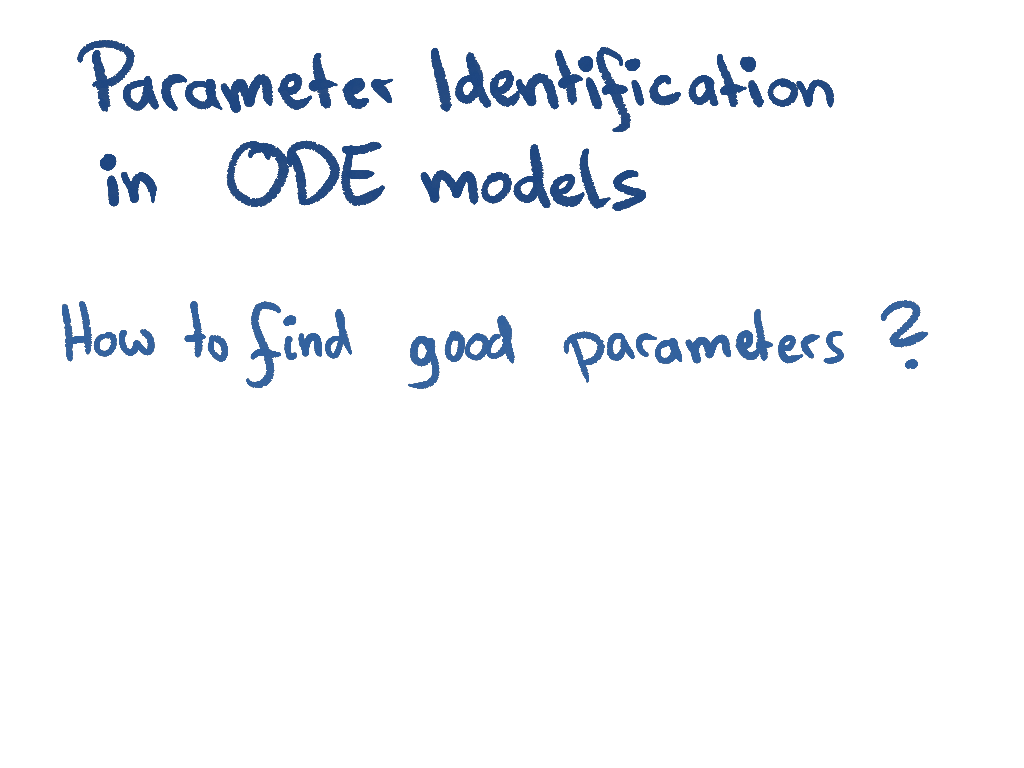 Parameter Identification
in ODE models
How to find good parameters ?